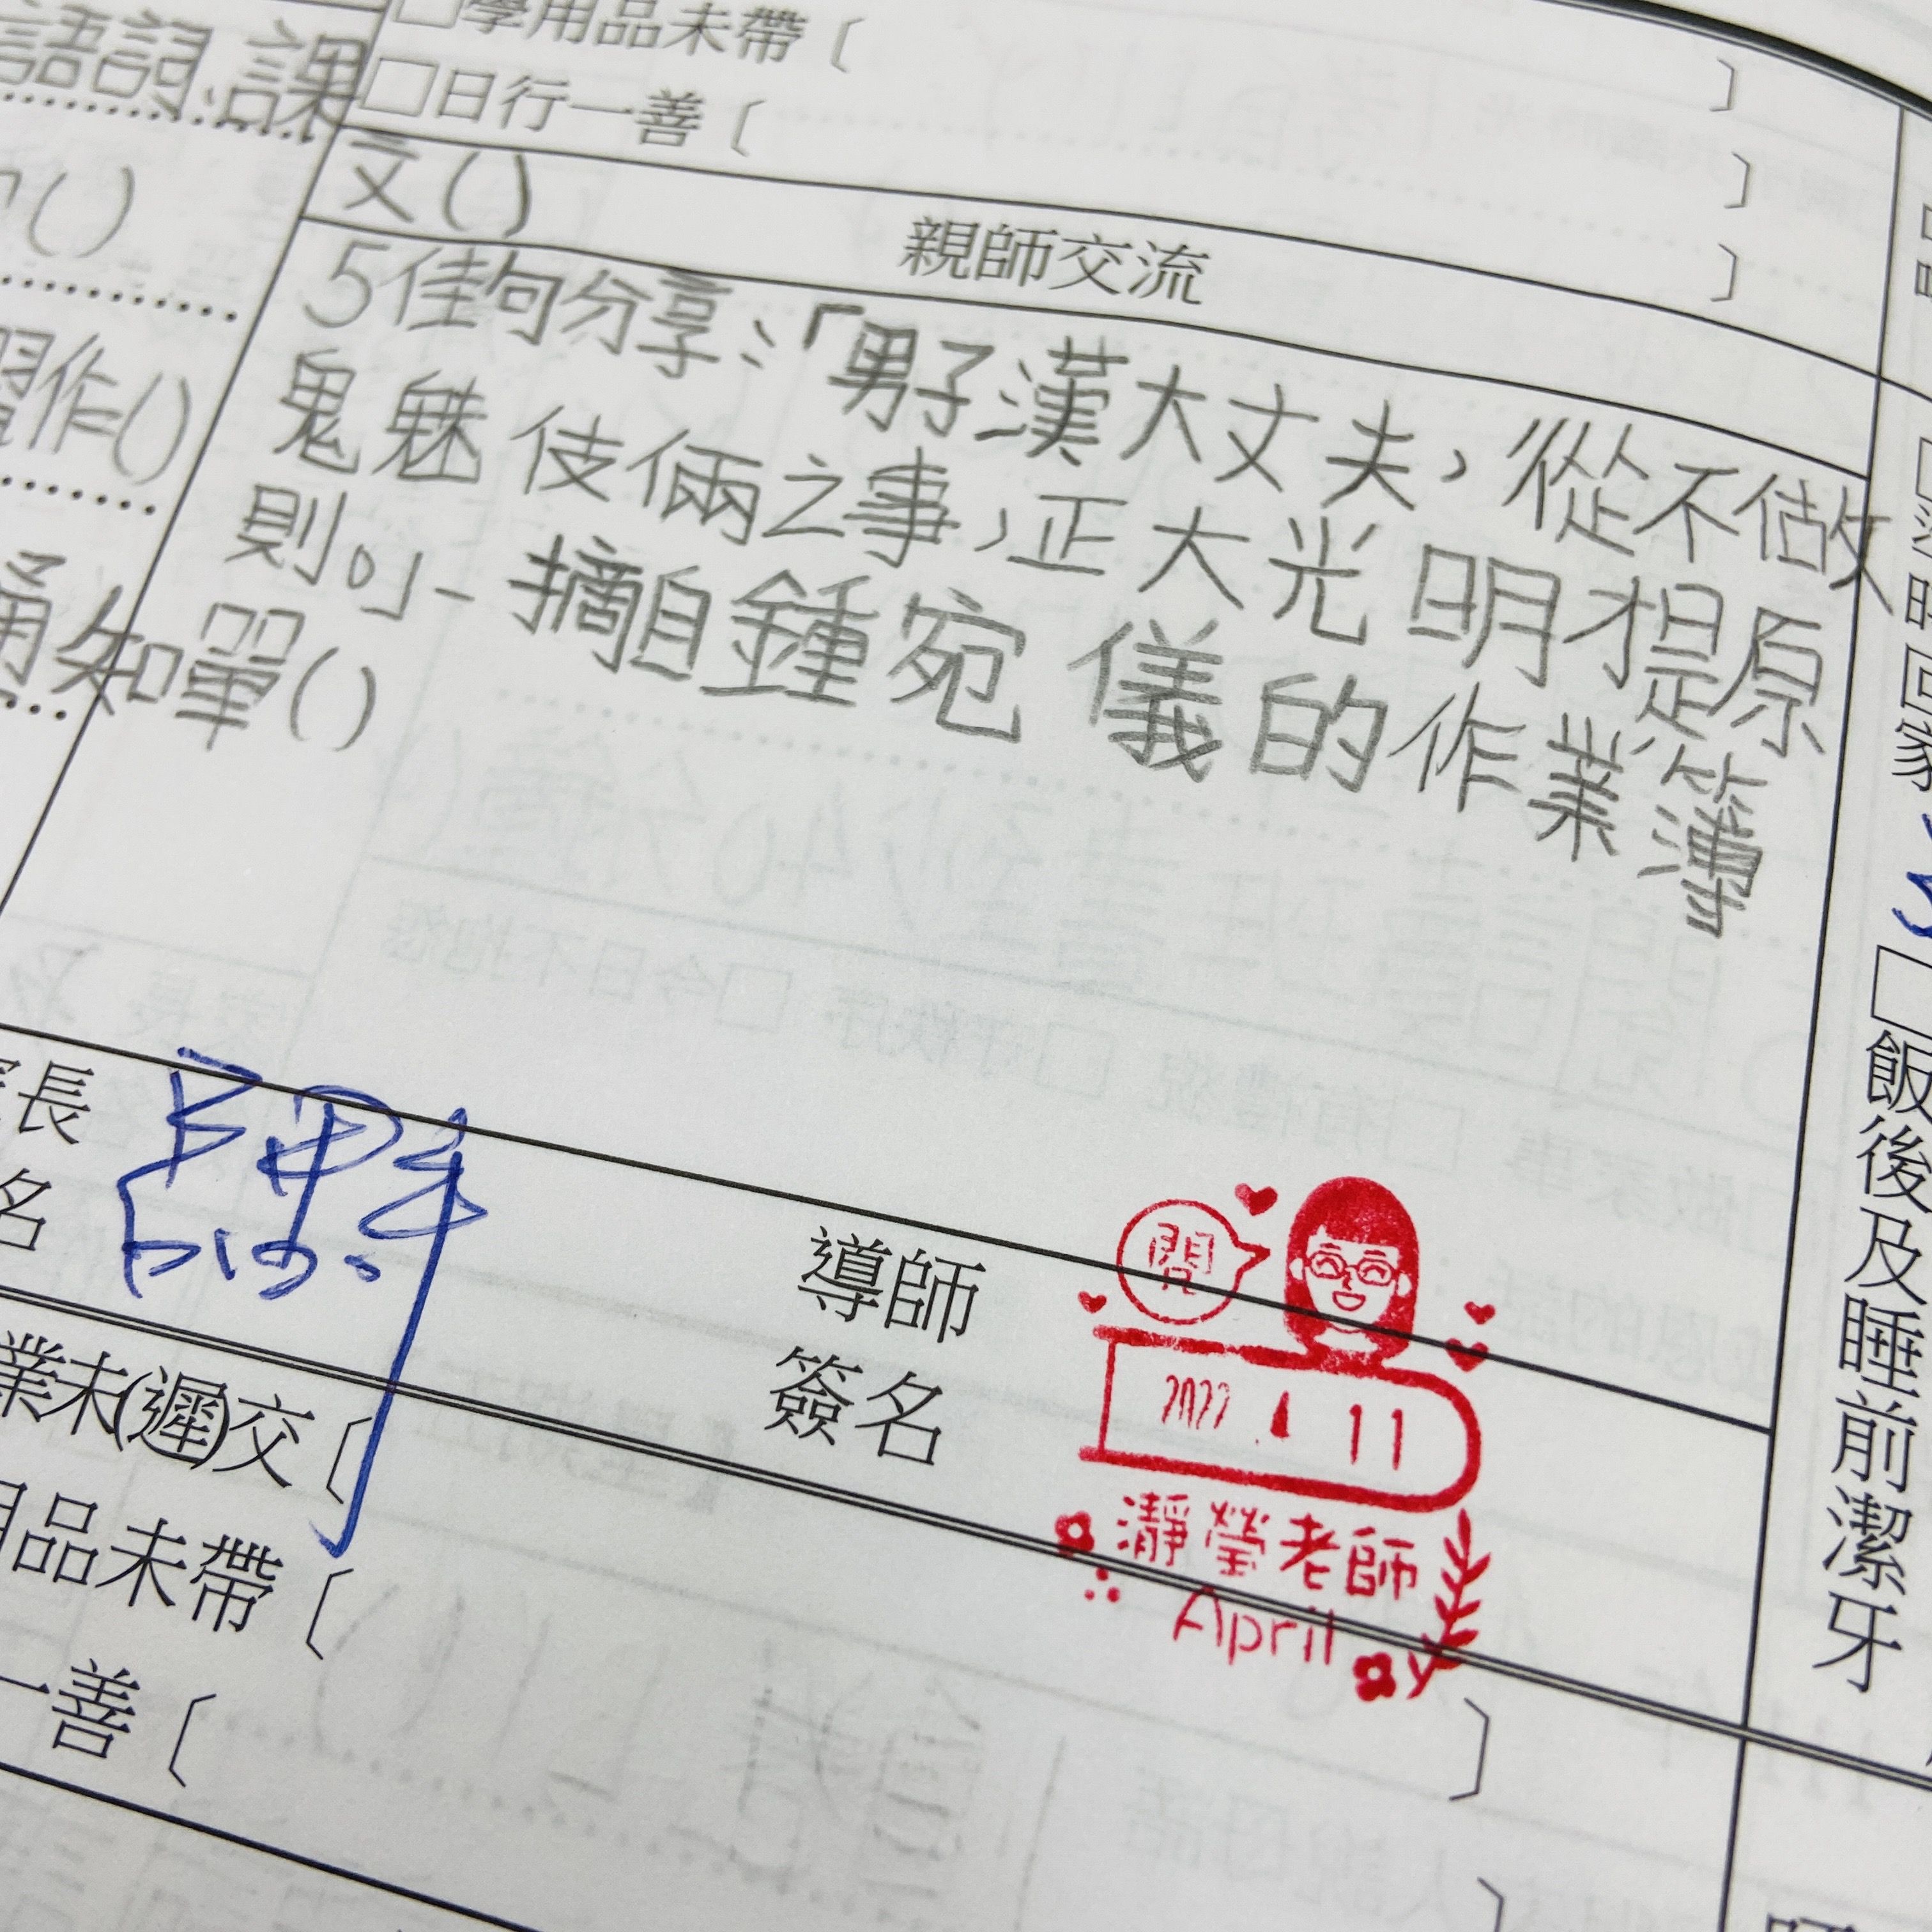 學用品未帶〔 〕
語詞.課
□日行一善〔 〕
文()
親師交流
5佳句分享:「男子漢大丈夫,從不做
鬼魅伎倆之事,正大光明才是原
則。」-摘自鍾宛儀的作業簿
習作()
通知單()
長
名
導師
簽名
閱
2022 . 1 11
瀞瑩老師
April
業未(遲)交〔
用品未帶〔 〕
一善〔
□飯後及睡前潔牙